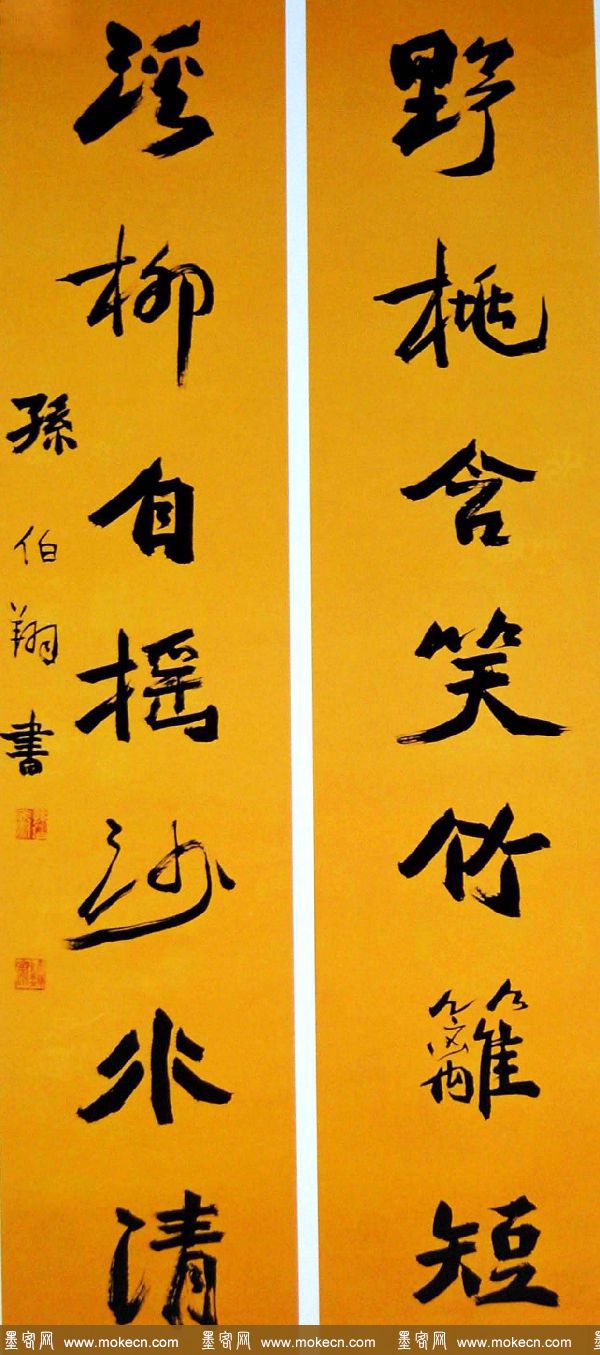 野桃含笑竹籬短
溪柳自摇沙水清
孫伯翔書
墨客网 www.mokecn.com 墨客网 www.mokecn.com 墨客网 www.mokecn.com 墨客网